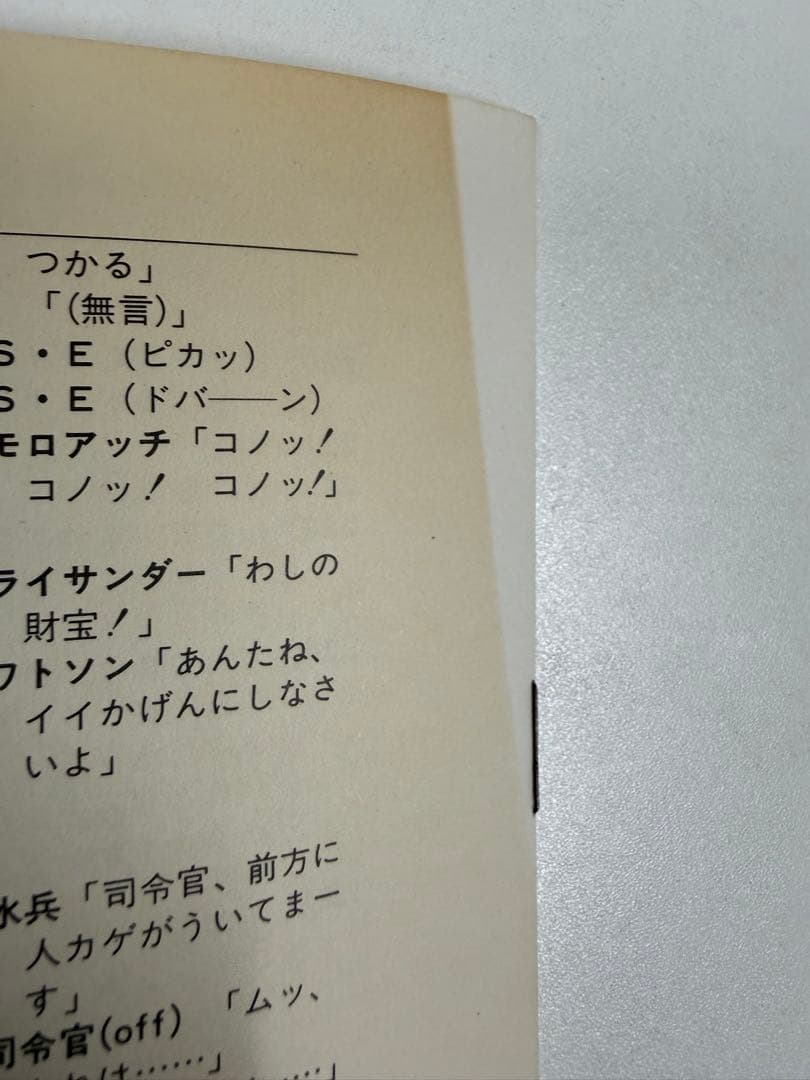 つかる」
「(無言)」
S・E（ピカッ）
S・E（ドバ――ン）
モロアッチ「コノッ！
コノッ！　コノッ！」
ライサンダー「わしの
財宝！」
ワトソン「あんたね、
イイかげんにしなさ
いよ」
水兵「司令官、前方に
人カゲがういてまー
す」
司令官(off)　「ムッ、